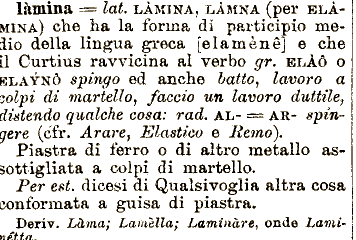 làmina = lat. LÀMINA, LÀMNA (per ELÀ-
MINA) che ha la forma di participio me-
dio della lingua greca [elamènê] e che
il Curtius ravvicina al verbo gr. ELÀÔ o
ELAÝNÔ spingo ed anche batto, lavoro a
colpi di martello, faccio un lavoro duttile,
distendo qualche cosa: rad. AL- = AR- spin-
gere (cfr. Arare, Elastico e Remo).
Piastra di ferro o di altro metallo as-
sottigliata a colpi di martello.
Per est. dicesi di Qualsivoglia altra cosa
conformata a guisa di piastra.
Deriv. Làma; Lamèlla; Laminàre, onde Lami-
nétta.